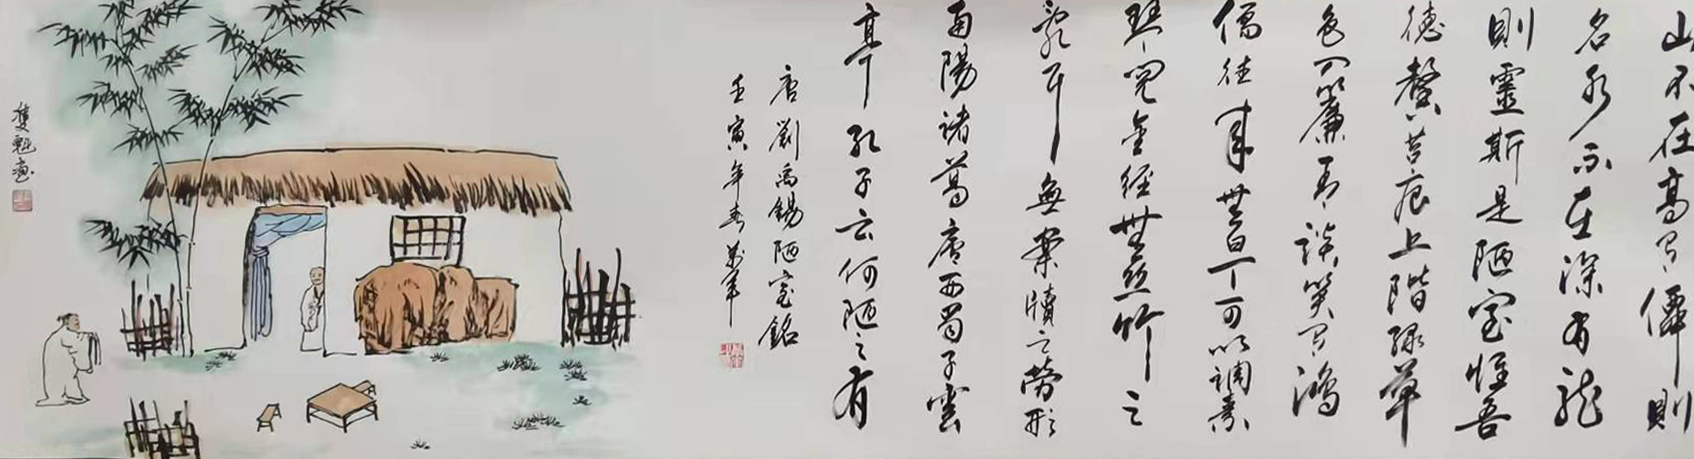 山不在高有僊則
名水不在深有龍
則靈斯是陋室惟吾
德馨苔痕上階綠草
色入簾青談笑有鴻
儒往來無白丁可以調素
琴閱金經無絲竹之
亂耳無案牘之勞形
南陽諸葛廬西蜀子雲
亭孔子云何陋之有
唐劉禹錫陋室銘
壬寅年春萬軍
雙魁画